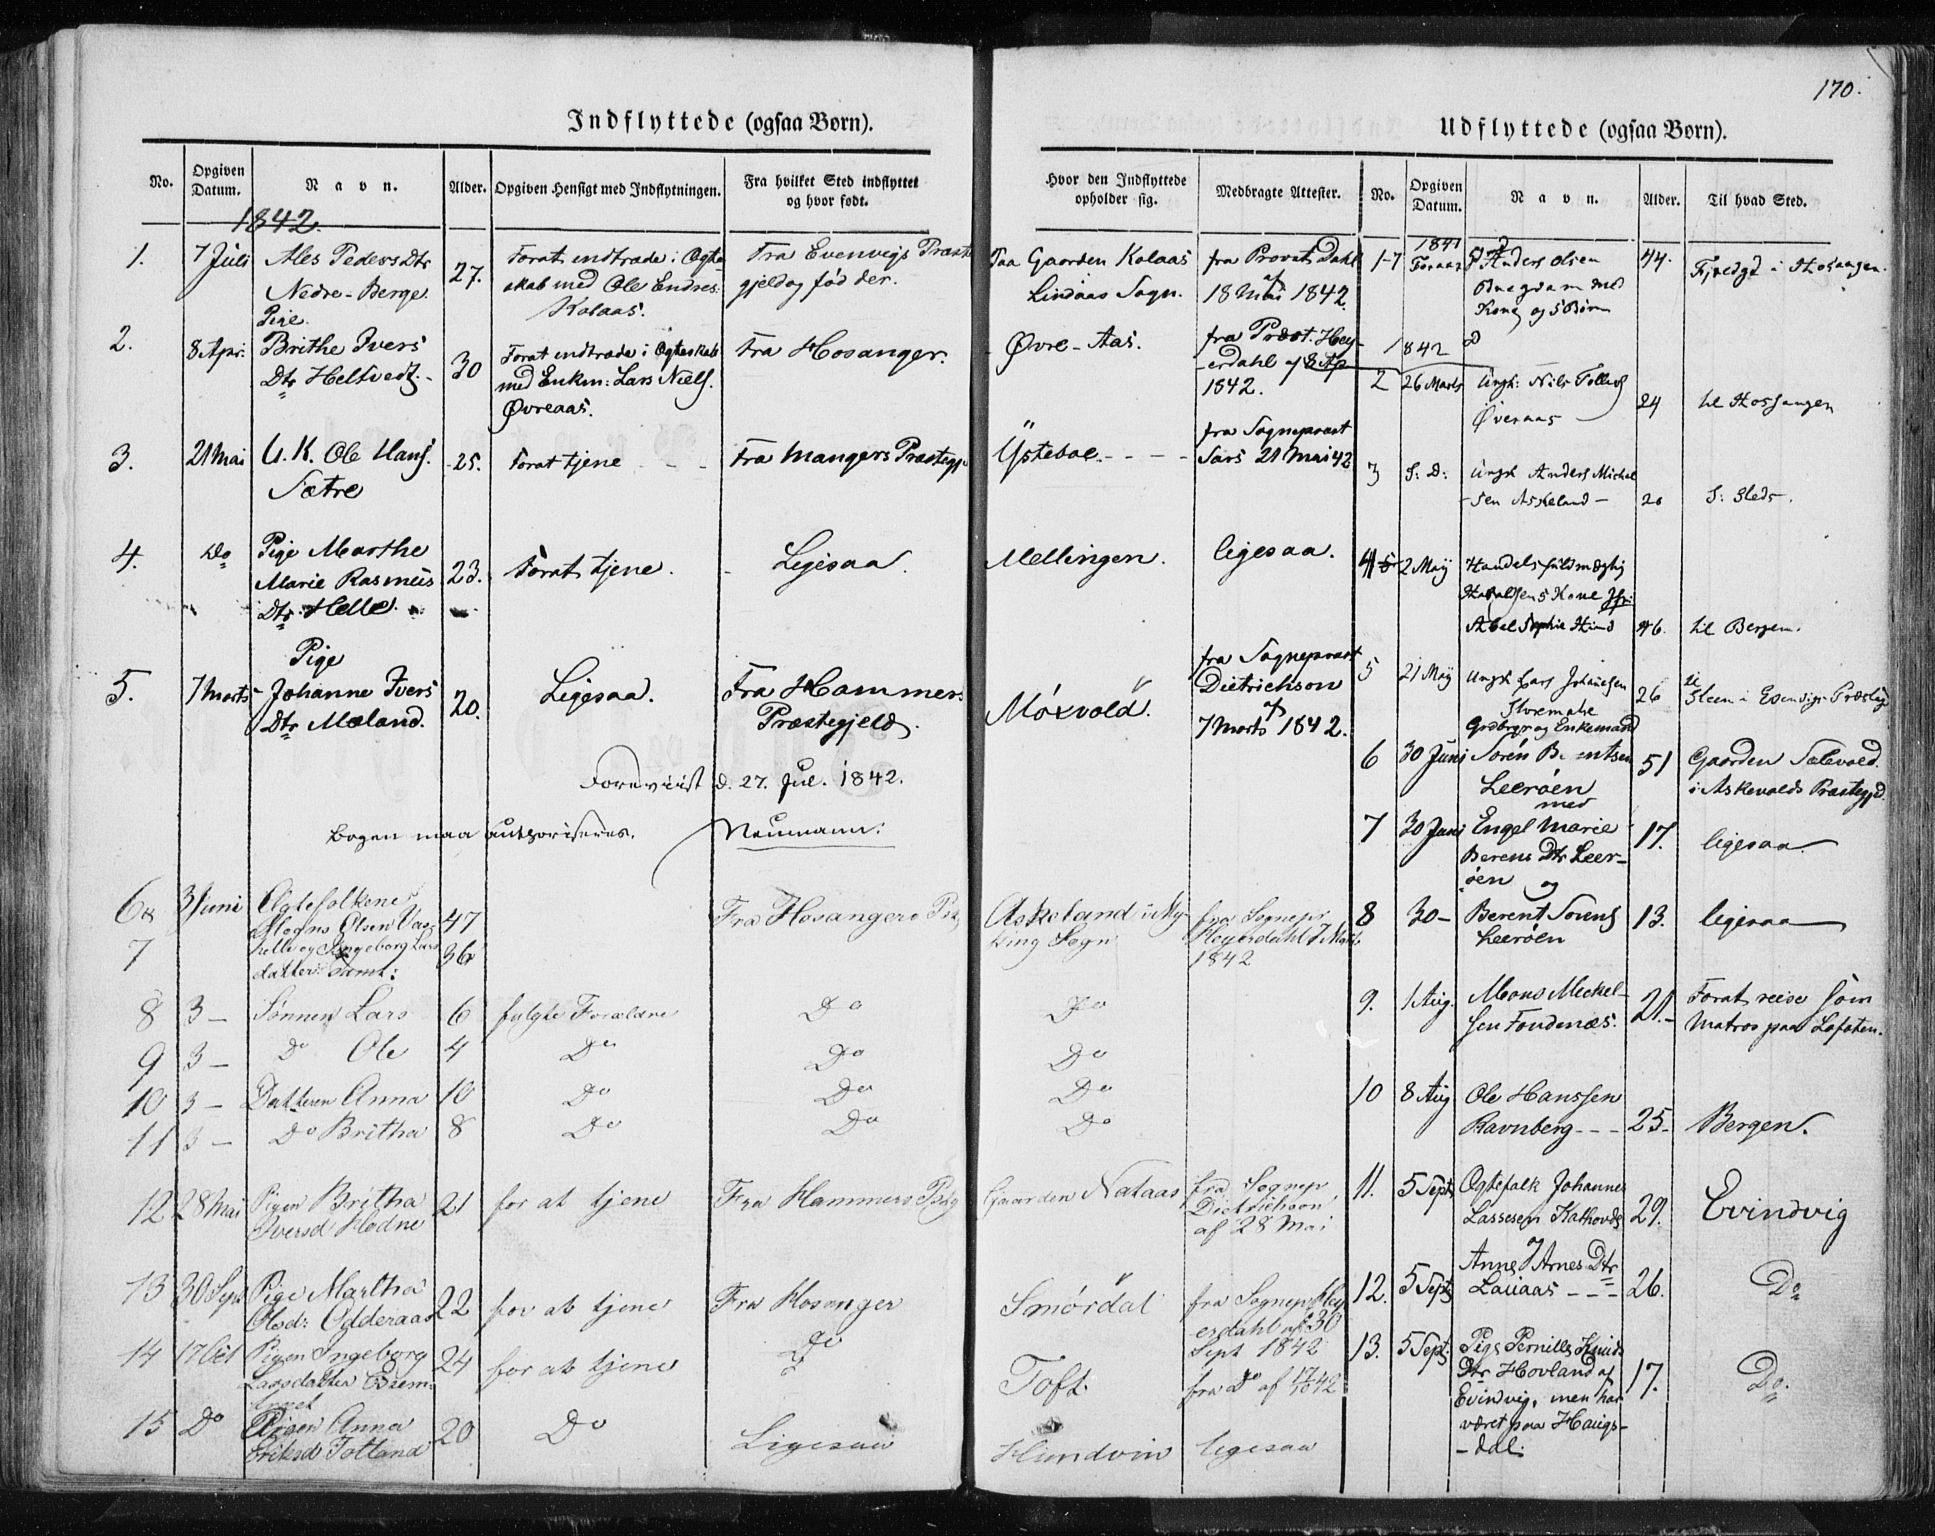 170.
Indflyttede (ogsaa Børn).
No.
Opgiven Datum.
Navn.
Alder.
Opgiven Hensigt med Indflytningen.
Fra hvilket Sted indflyttet og hvor født.
Hvor den Indflyttede opholder sig.
Medbragte Attester.
1842.
1. 7 Juli Ales Peders Dtr 27. Forat indtrade i Ogte- Fra Evenvigs Præste- Paa Gaarden Kolaas fra Provst Dahl
Nedre-Berge. skab med Ole Endres. gjeld og fød der. Lindaas Sogn. af 18 Mai 1842.
Pige. Kolaas.
2. 8 Apr: Brithe Ivers 30 Forat indtrade i Ogteskab Fra Hosanger. Øvre-Aas. fra Præst. Hey-
Dtr Heltvedt. med Enkm: Lars Niels. erdahl af 8 Ap
Øvreaas. 1842.
3. 21 Mai U. K. Ole Hans. 25. Forat tjene Fra Mangers Præstegj. Ysteboe. fra Sogneprest
Sætre Sars 21 Mai 42
4. Do Pige Marthe 23. Forat tjene. Ligesaa. Mellingen. ligesaa.
Marie Rasmus
Dtr. Helle.
Pige
5. 7 Marts Johanne Ivers 20. Ligesaa. Fra Hammers Moxvold. fra Sogneprest
Dtr Mæland. Præstegjeld. Dietrichson
af 7 Marts 1842.
Foreviist d. 27. Jul. 1842.
Bogen maa authoriseres. Neumann.
6 & 3 Juni Ægtefolkene Fra Hosangers Askeland i My- fra Sognepr
Mogns Olsen 47 king Sogn Heyerdahl 7 Mai
7 helle og Ingeborg Lars 36 1842
datter samt:
8 3 – Sønnen Lars 6 følgte Forældrene Do Do
9 3 – Do Ole 4 Do Do Do
10 3 – Datteren Anna 10 Do Do Do
11 3 – Do Britha 8 Do Do Do
12 28 Mai Pigen Britha 21 for at tjene Fra Hammers Gaarden Nataas fra Sognepr
Iversd Hodne Dietrichson
af 28 Mai
13 30 Sept Pige Martha 22 for at tjene Fra Hosanger Smørdal fra Sognepr Hey
Olsdr Odderaas erdahl af 30
Sept 1842
14 17 Oct Pigen Ingeborg 24 for at tjene Do Toft. fra Do af 17/10 42
Larsdatter
15 Do Pigen Anna 20 Do Ligesaa Hundvin ligesaa
Eriksd Totland
Udflyttede (ogsaa Børn).
No.
Opgiven Datum.
Navn.
Alder.
Til hvad Sted.
1841
1 Foraar Anders Olsen 44. i Hosangen.
med
Kone og 5 Børn
1842
2 26 Marts Ungk: Nils Tollefs
Øveraas 24 til Hosangen
3 S: D: Ungk Anders Michel
sen Askeland – 20 S: Sted.
4 2 Maj Handelsfuldmægtig
Kone
Abel Sophie Hind 46. til Bergen.
5 21 Maj Ungk Lars Johannesen 26 til
Steen i Præsteg
og Enkemand
6 30 Juni Søren Berentsen 51 Gaarden Sælevold
Leerøen i Askevolds Præstegjd.
med
7 30 Juni Engel Marie 17. ligesaa
Berens Dtr Leer-
øen og
8 30 – Berent Sørens 13. ligesaa
Leerøen
9. 1 Aug. Mons Meckel- 21. Forat reise som
sen Fondenæs. Matros paa Lofoten.
10 8 Aug Ole Hanssen
Ravnberg 25. Bergen.
11. 5 Sept Ogtefolk Johannes
Lassesen 29. Evindvig
og
12. 5 Sept Anne Arnes Dtr
Lauaas 26. Do
13. 5 Sept. Pige Pernille Knuds
Dtr Hovland af 17. Do.
Evindvig, men har
været paa Haugs-
dal.